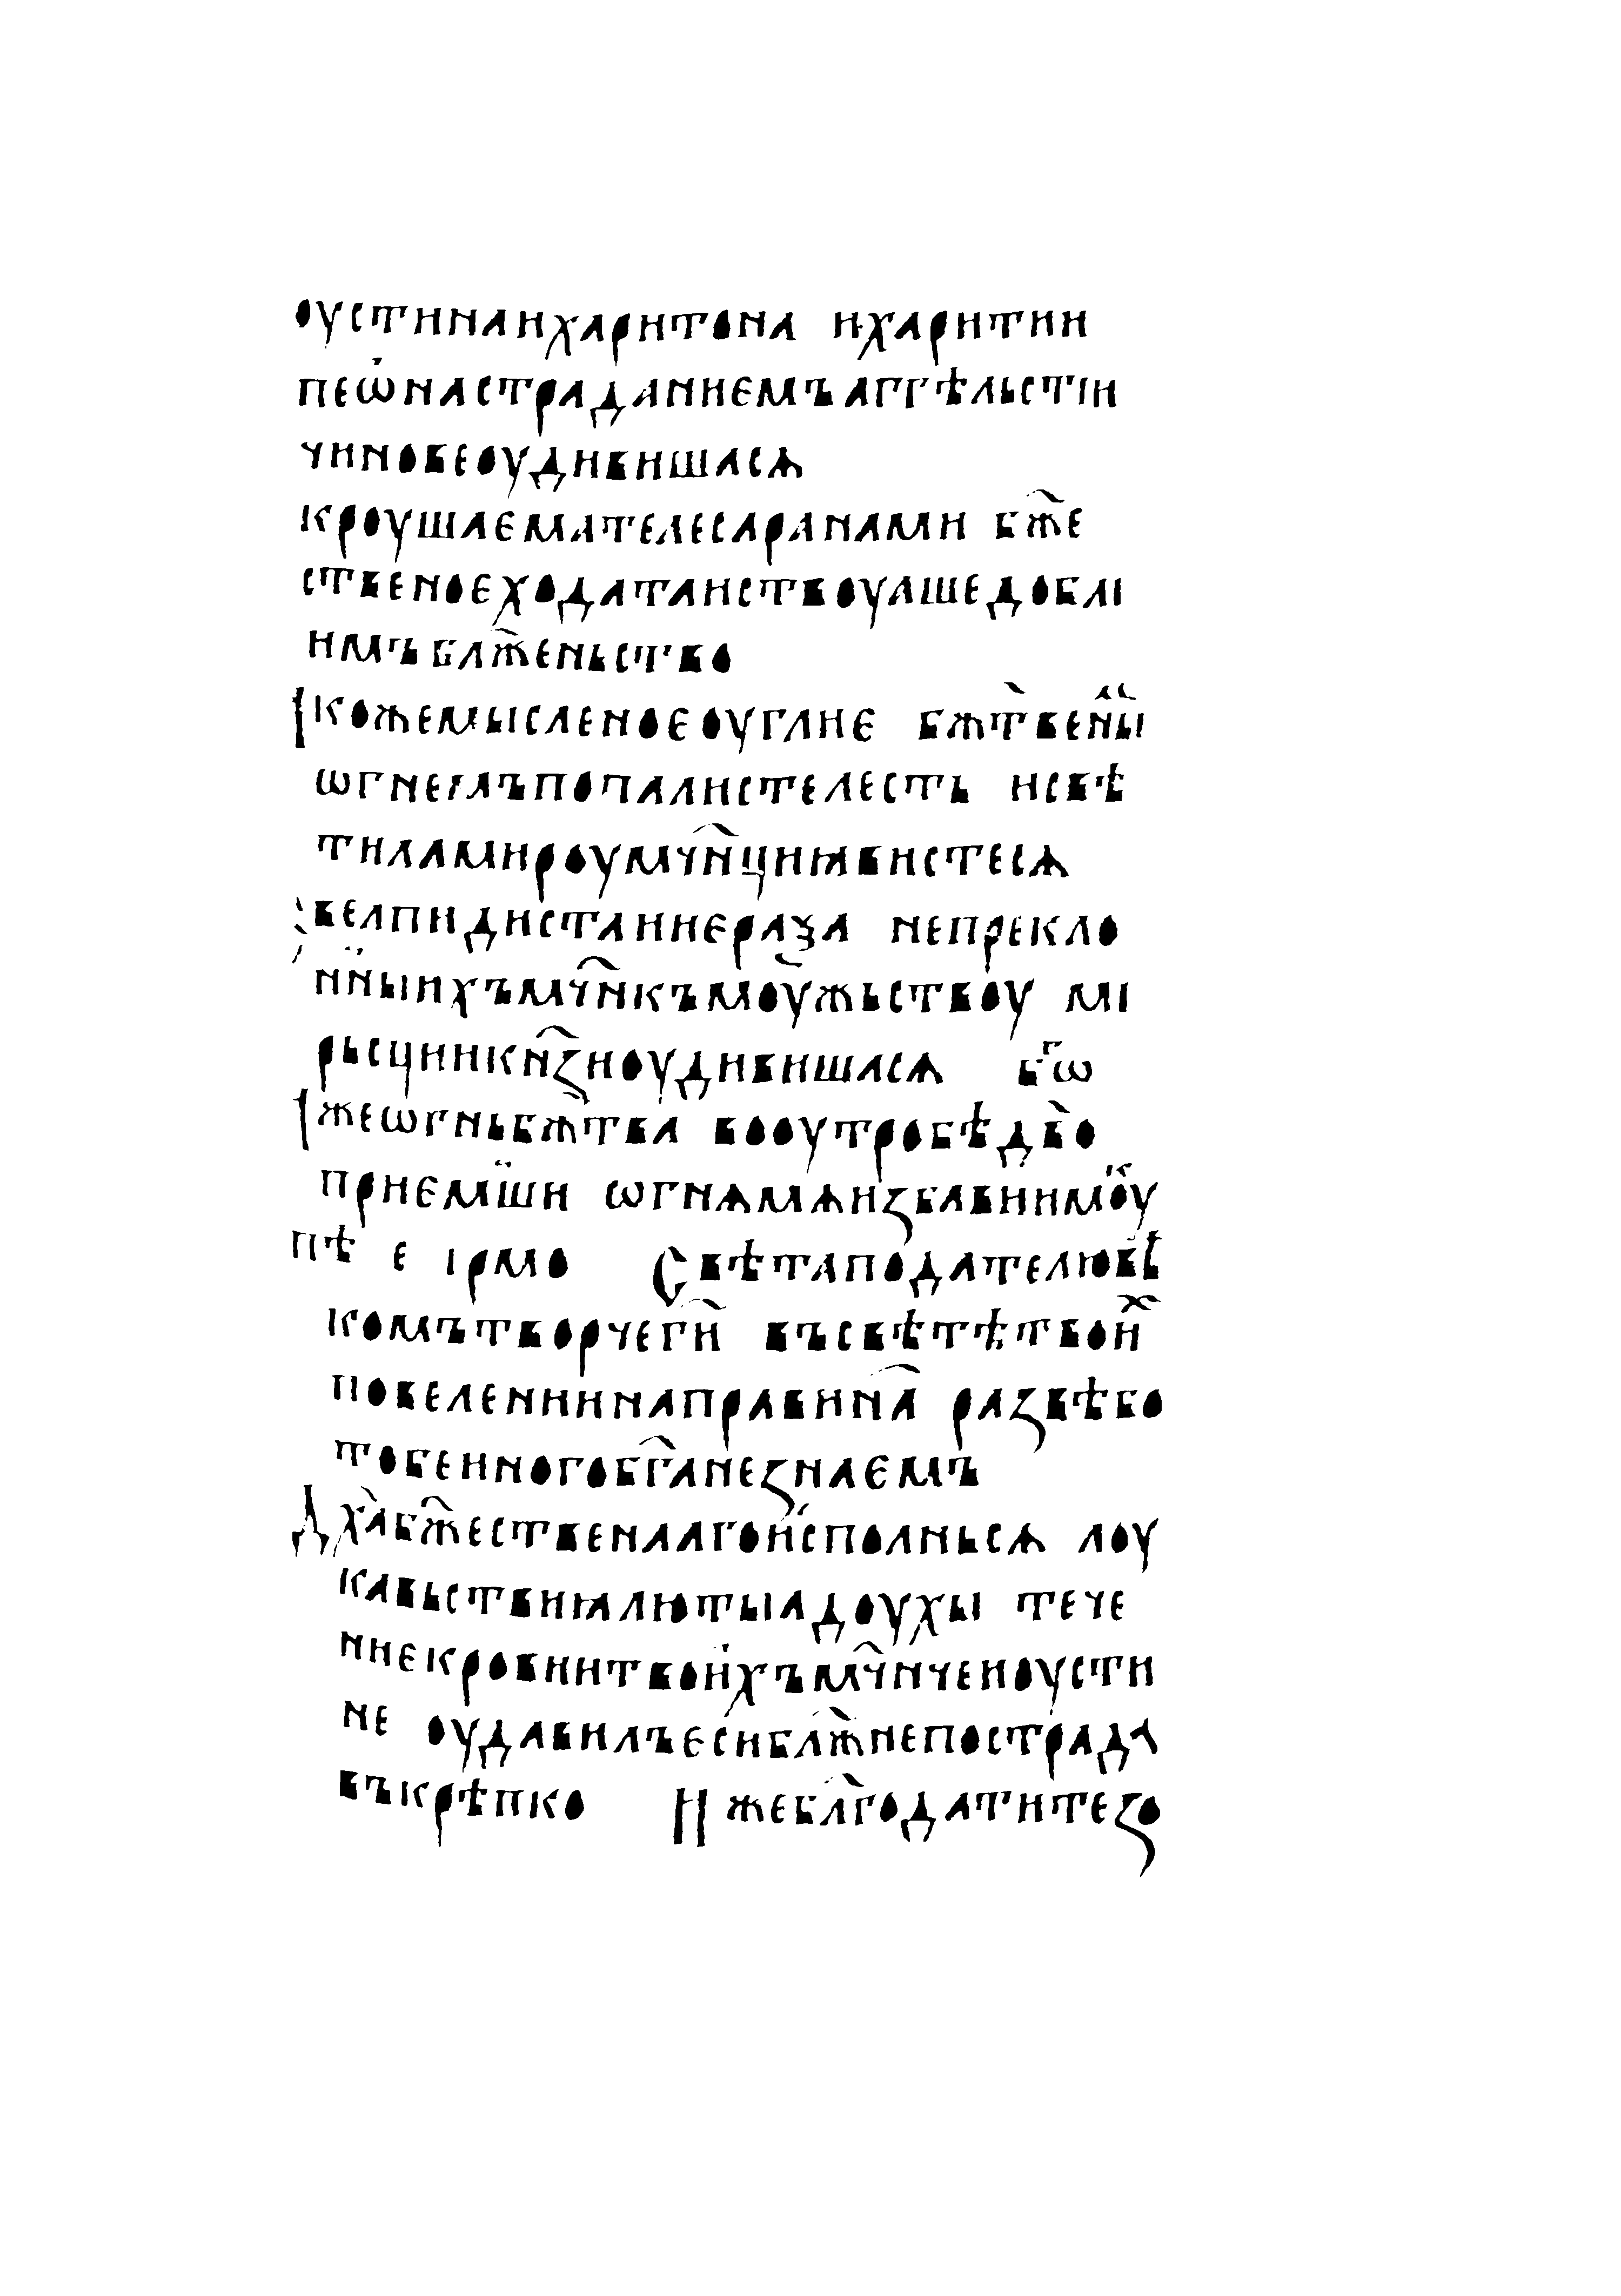 оустинаихаритона ихаритии
пеѡ҆настраданиємъаггѣльстіи
чиновеоудивишасѧ
кроушаєматѣлесаранами бж҃е
ственоєходатаиствоуашедоблі
имъблж҃еньство
Ікожемысленоєоуглиє бжт҃вены҆и
ѡгнемлъпопалистелесть исвѣ
тиламироумчн҃циꙗвистесѧ
Ѯвелпидистаниєраꙁа непрекло
нныихъмчн҃къмоужьствоу мі
рьсциикнѕ҃иоудивишасѧ бг҃ѡ
Іжеѡгньбжт҃ва вооутробѣдв҃о
приємши ѡгнѧмѧизбавиимоу
пѣ е ірмо Свѣтаподателювѣ
комътворчегн҃ въсвѣтѣтвоих
повелениинаправина҃ развѣбо
тобеиногобг҃анезнаємъ
Дх҃абж҃ественаагоисполньсѧ лоу
кавьствиꙗлютыадоухы тече
ниєкровиитвоихъмчн҃чеиоусти
не оудавилъєсиблж҃непострада
въкрѣпко Ижеблг҃одатитезо